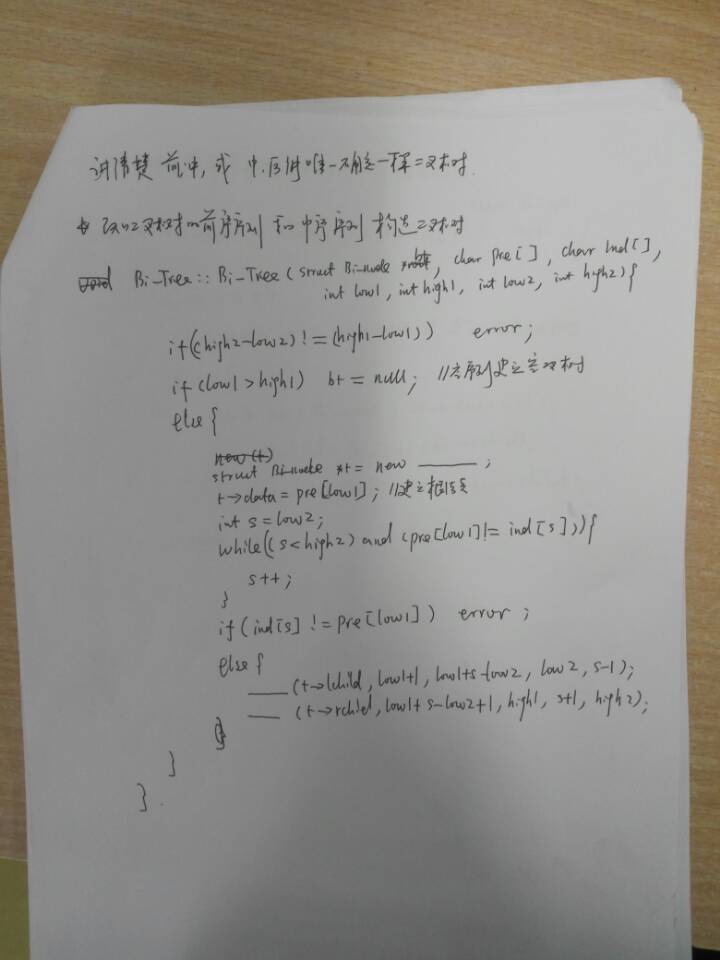 讲清楚 前中, 或 中后 能唯一确定一棵二叉树.
以二叉树的前序序列 和 中序序列 构造二叉树
void Bi_Tree :: Bi_Tree ( struct Bi_node *bt, char pre[ ] , char ind[ ] ,
int low1, int high1, int low2, int high2){
if((high2-low2) != (high1-low1)) error;
if(low1 > high1) bt = null; //空序列建立空二叉树
else {
new (t)
struct Bi_node *t = new ______ ;
t->data = pre[low1]; //建立根结点
int s = low2;
while((s < high2) and (pre[low1] != ind[s])){
s++;
}
if(ind[s] != pre[low1]) error ;
else {
____ (t->lchild, low1+1, low1+s-low2, low2, s-1);
____ (t->rchild, low1+s-low2+1, high1, s+1, high2);
}
}
}.